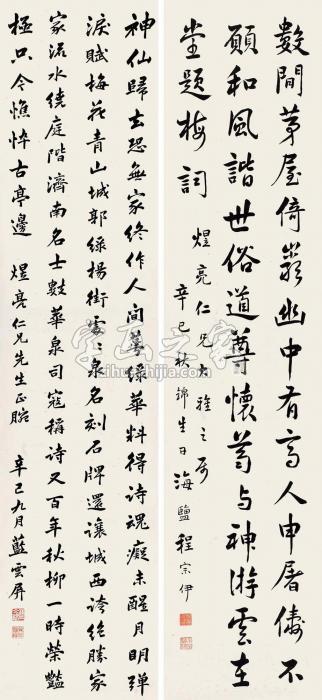 數間茅屋倚巖幽中有高人申屠倭不
願和風諧世俗道尊懷葛與神游雲在
堂題梅詞
煜亮仁兄大雅之屬
辛巳秋錦生日海鹽程宗伊
神仙歸去恐無家終作人間萼綠華料得詩魂癡未醒月明彈
淚賦梅花青山城郭綠楊街處處泉名刻石牌還讓城西誇絕勝家
家流水繞庭階濟南名士數華泉司寇稱詩又百年秋柳一時榮豔
極只今憔悴古亭邊 煜亮仁兄先生正腕
辛巳九月藍雲屏
字画之家
zihuashijia.com